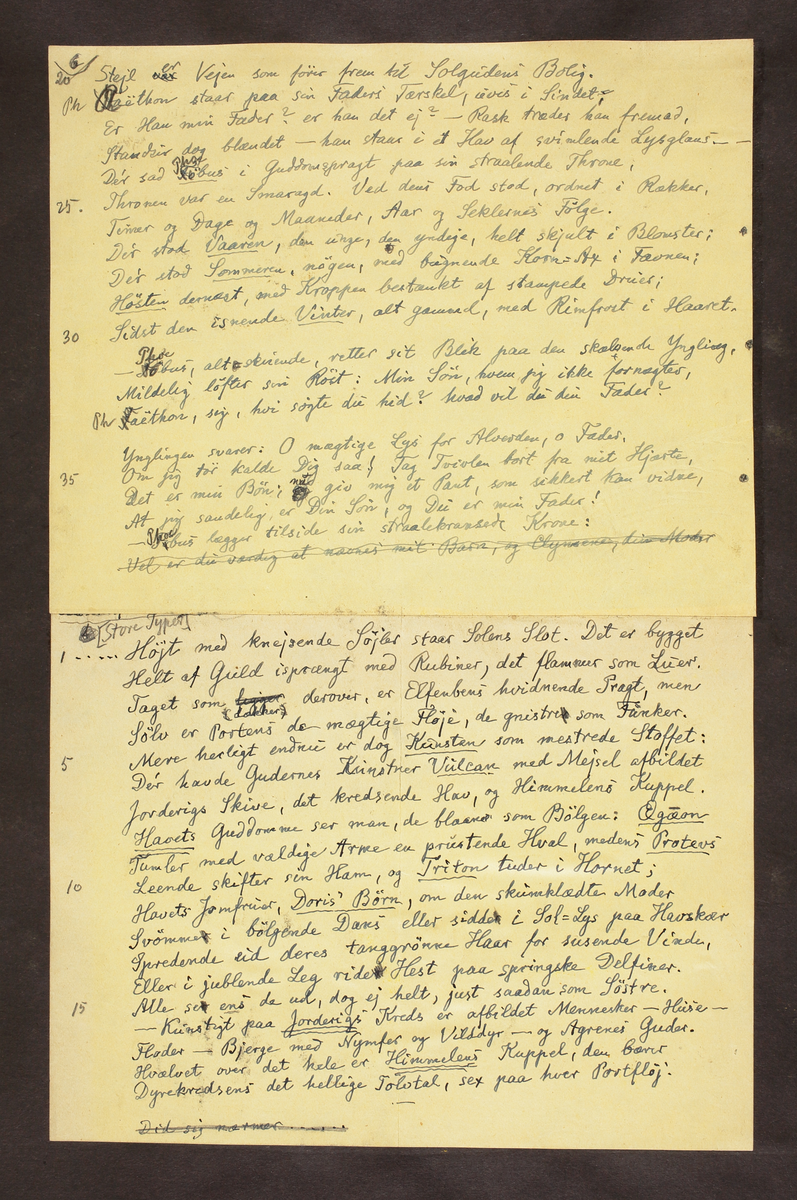 6
20 Stejl er Vejen som förer frem til Solgudens Bolig.
Ph Faëthon staar paa sin Faders Tærskel, uvis i Sindet;
Er Han min Fader? er han det ej? — Rask træder han fremad,
Standser dog blændet — han staar i et Hav af svimlende Lysglans —
Dér sad Phoebus i Guddomspragt paa sin straalende Throne,
25. Thronen var en Smaragd. Ved dens Fod stod, ordnet i Rækker,
Timer og Dage og Maaneder, Aar og Seklernes Følge.
Dér stod Vaaren, den unge, den yndige, helt skjult i Blomster;
Dér stod Sommeren, nögen, med bugnende Korn=Ax i Favnen;
Hösten dernæst, med Kroppen bestænkt af stampede Druer;
30 Sidst den isnende Vinter, alt gammel, med Rimfrost i Haaret.
— Phoebus, alt=skuende, retter sit Blik paa den skælvende Yngling,
Mildelig löfter sin Röst: Min Sön, hvem jeg ikke fornægter,
Ph Faëthon, sig, hvi sögte du hid? hvad vil du din Fader?
Ynglingen svarer: O mægtige Lys for Alverden, o Fader,
35 Om jeg tör kalde Dig saa! Tag Tvivlen bort fra mit Hjærte,
Det er min Bön; med giv mig et Pant, som sikkert kan vidne,
At jeg sandelig er Din Sön, og Du er min Fader!
— Phoebus lægger tilside sin straalekransede Krone:
Vel er du værdig at nævnes mit Barn, og Clymene, din Moder
[Store Typer]
1 ..... Höjt med knejsende Söjler staar Solens Slot. Det er bygget
Helt af Guld isprængt med Rubiner, det flammer som Luer.
Taget som ligger derover, er Elfenbens hvidnende Pragt, men
(dækker)
Sölv er Portens de mægtige Flöje, de gnistre som Funker.
5 Mere herligt endnu er dog Kunsten som mestrede Stoffet:
Dér havde Gudernes Kunstner Vulcan med Mejsel afbildet
Jorderigs Skive, det kredsende Hav, og Himmelens Kuppel.
Havets Guddomme ser man, de blaane som Bölgen: Ægæon
Tumler med vældige Arme en prustende Hval, medens Protevs
10 Leende skifter sin Ham, og Triton tuder i Hornet;
Havets Jomfruer, Doris' Börn, om den skumklædte Moder
Svömme i bölgende Dans eller sidde i Sol=Lys paa Havskær
Spredende ud deres tanggrönne Haar for susende Vinde,
Eller i jublende Leg ride Hest paa springske Delfiner.
15 Alle se ens da ud, dog ej helt, just saadan som Söstre.
— Kunstigt paa Jorderigs Kreds er afbildet Mennesker — Huse —
Floder — Bjerge med Nymfer og Vilddyr — og Agrenes Guder.
Hvælvet over det hele er Himmelens Kuppel, den bærer
Dyrekredsens det hellige Tolvtal, sex paa hver Portflöj.
Did sig nærmer ......